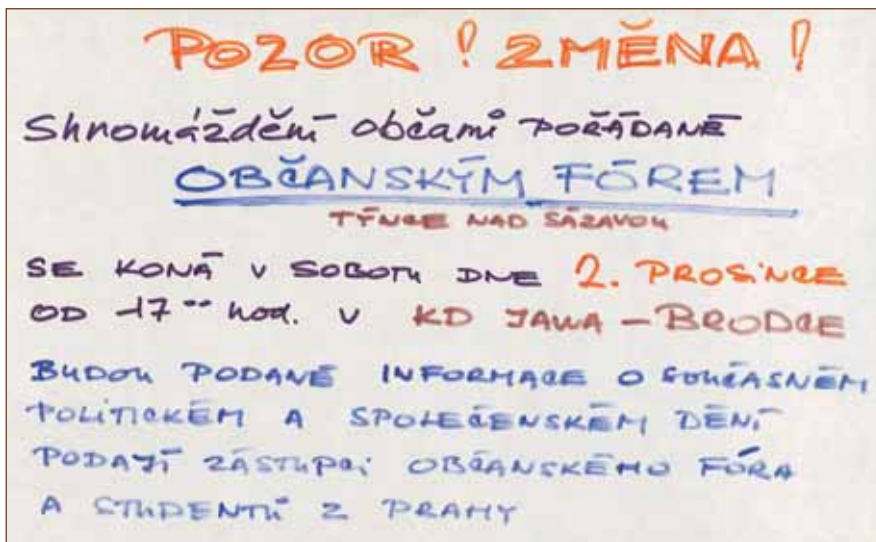 POZOR ! ZMĚNA !
Shromáždění občanů POŘÁDANÉ
OBČANSKÝM FÓREM
TÝNCE NAD SÁZAVOU
SE KONÁ V SOBOTU DNE 2. PROSINCE
OD 17⁰⁰ hod. V KD JAWA – BRODCE
BUDOU PODANÉ INFORMACE O SOUČASNÉM
POLITICKÉM A SPOLEČENSKÉM DĚNÍ
PODAJÍ ZÁSTUPCI OBČANSKÉHO FÓRA
A STUDENTŮ Z PRAHY